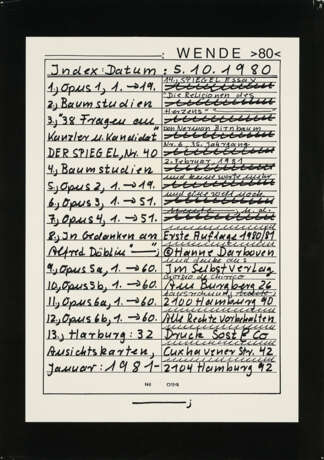 WENDE >80<
Index: Datum: 5.10.1980
1., Opus 1, 1. → 19.
2., Baumstudien
3., "38 Fragen an
Kanzler u. Kandidat"
DER SPIEGEL, Nr. 40
4., Baumstudien
5., Opus 2, 1. → 19.
6., Opus 3, 1. → 51.
7., Opus 4, 1. → 51.
8., In Gedanken an
Alfred Döblin "—";
9., Opus 5a, 1. → 60.
10., Opus 5b, 1. → 60.
11., Opus 6a, 1. → 60.
12., Opus 6b, 1. → 60.
13., Harburg: 32
Ansichtskarten,
Januar: 1981-
SPIEGEL Essay
Die Religionen des
Herzens
von Norman Birnbaum
Nr. 6, 35. Jahrgang
2. Februar, 1981
und keine worte mehr
Erste Auflage 1980/81
© Hanne Darboven
Im Selbstverlag
Am Burgberg 26
2100 Hamburg 90
Alle Rechte vorbehalten
Druck Sost & Co
Cuxhavener Str. 42
2104 Hamburg 92